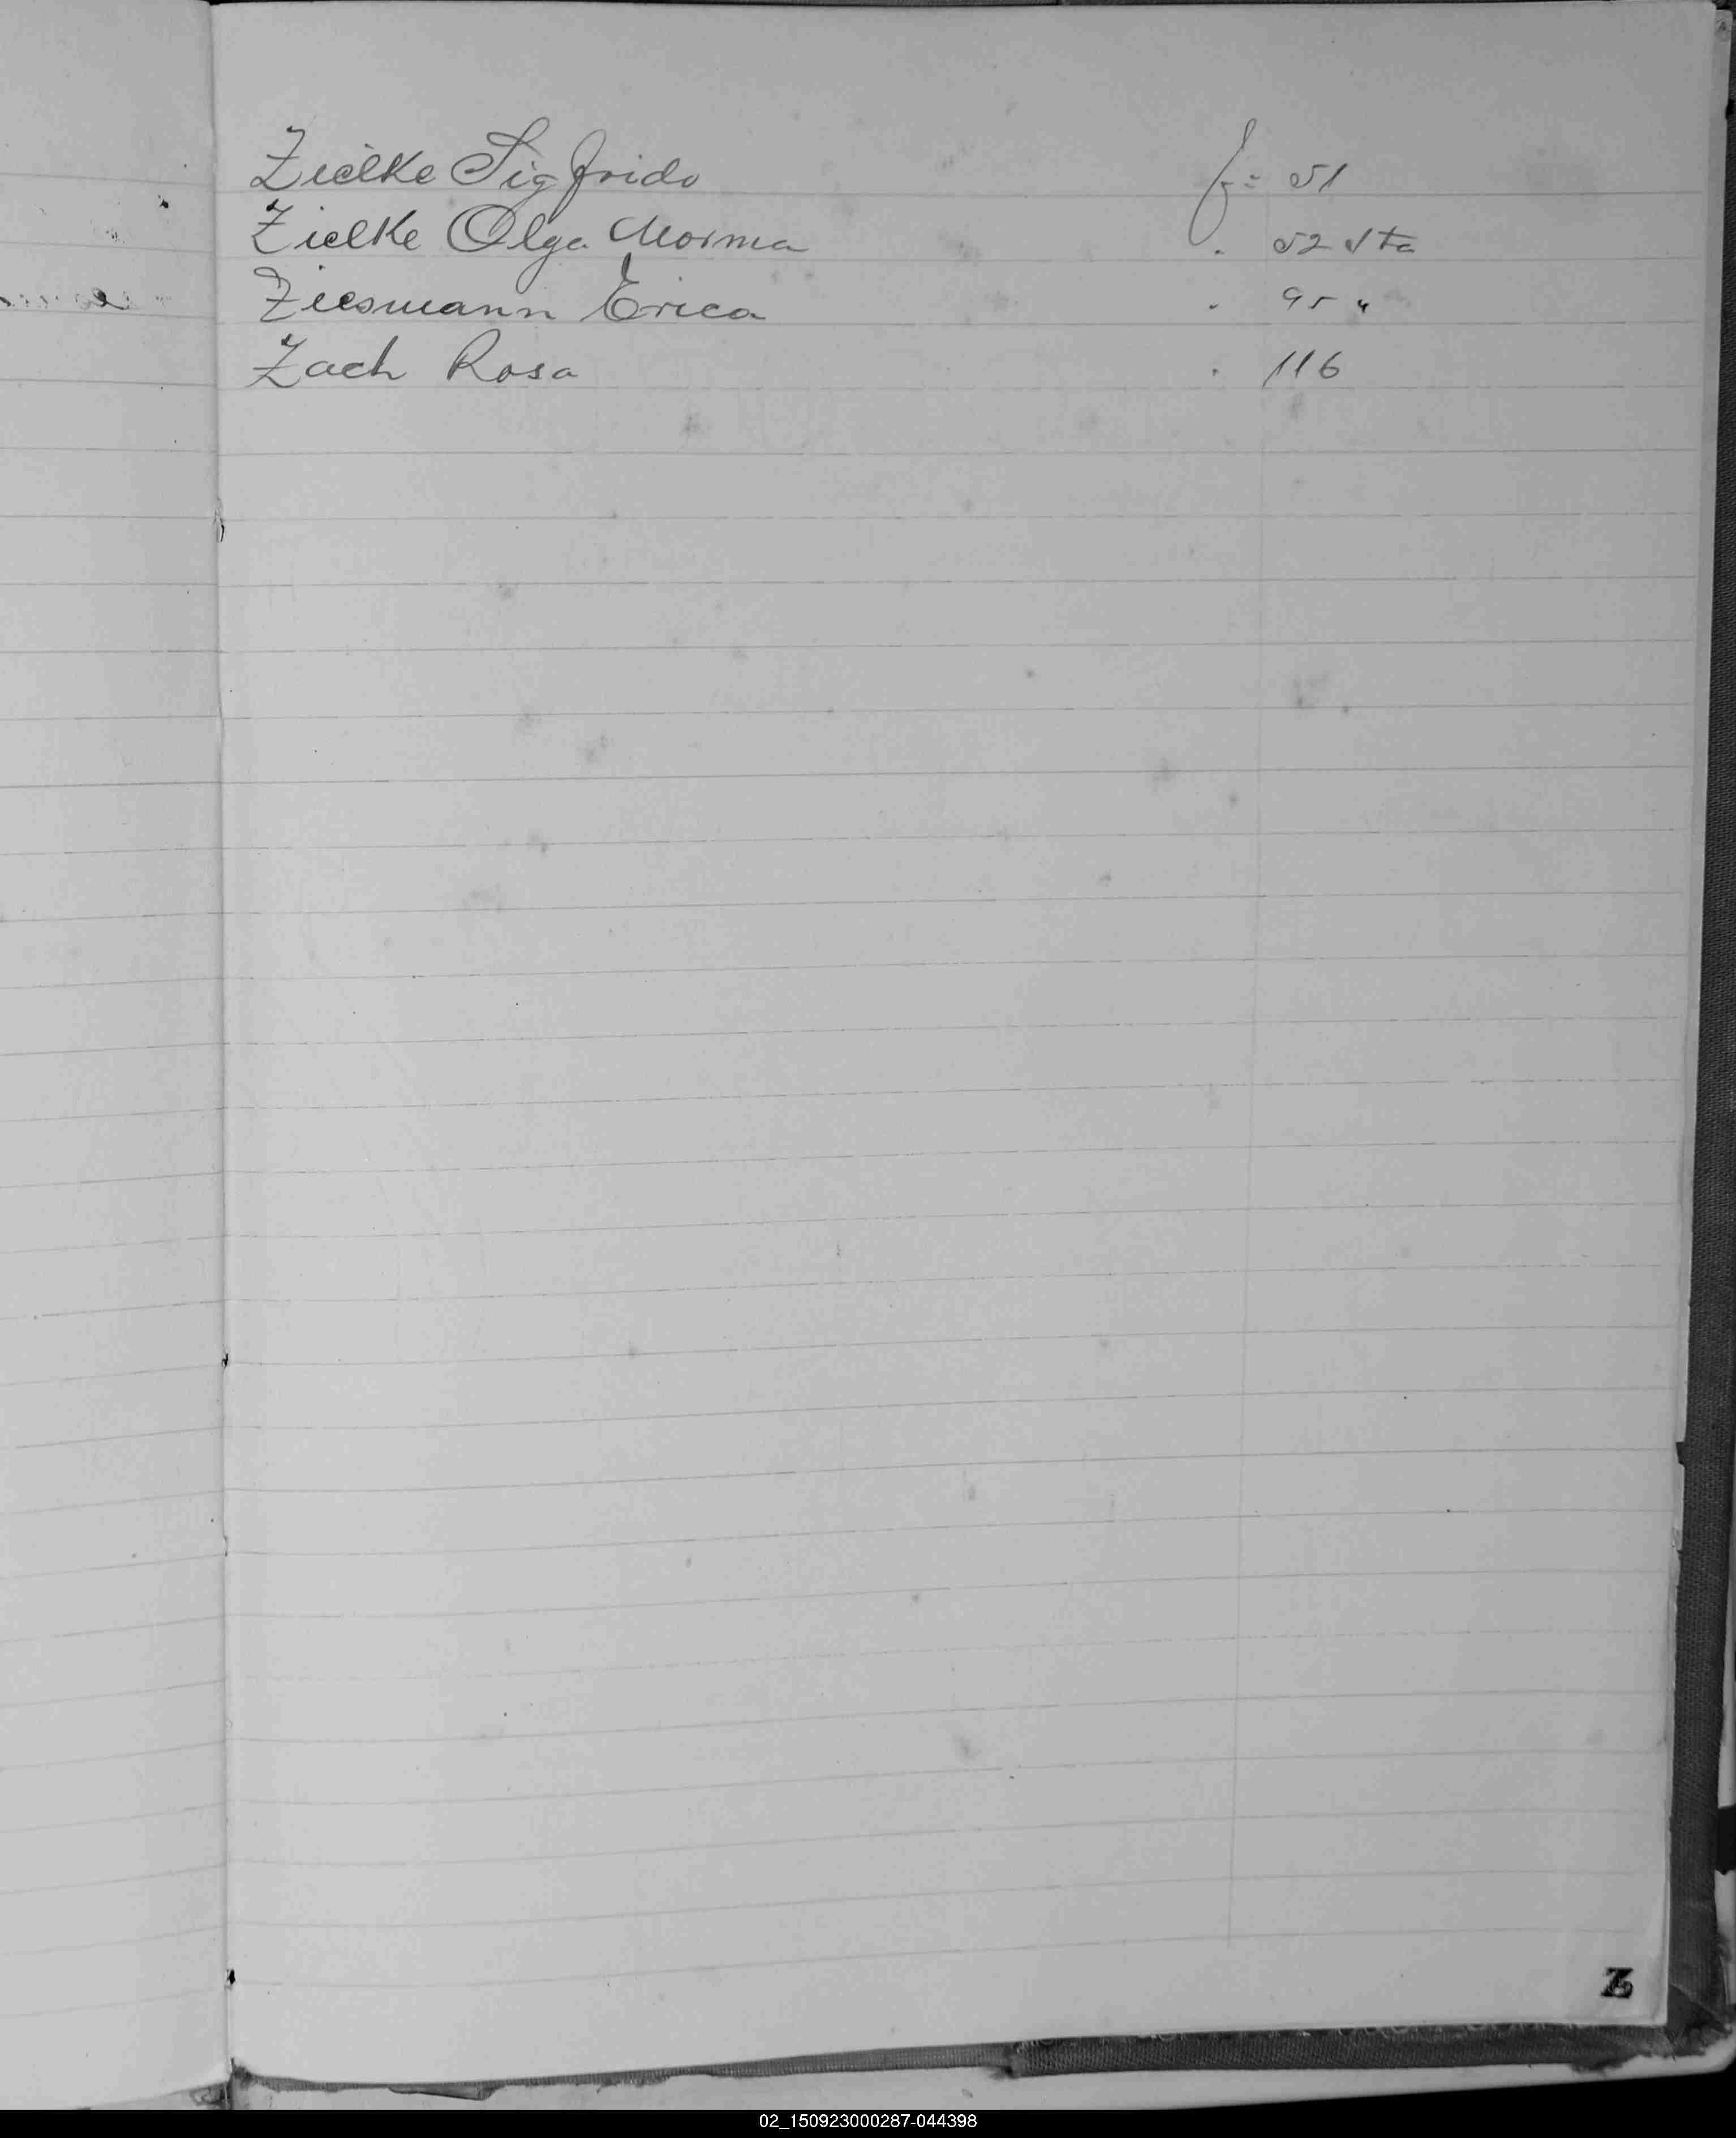 Zielke Sigfrido fs= 51
Zielke Olga Norma . 52 vta
Ziesmann Erica . 95 "
Zach Rosa . 116
Z
02_150923000287-044398